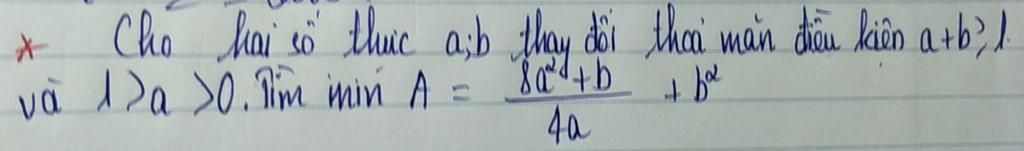 * Cho hai số thực a;b thay đổi thoả mãn điều kiện a+b≥1
và 1>a>0. Tìm min A = \frac{8a²+b}{4a} + b²